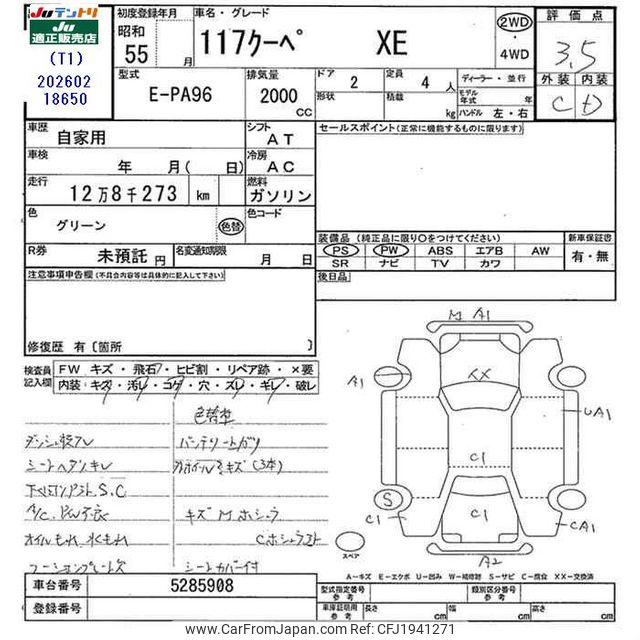 JUテントリ
JU
適正販売店
(T1)
202602
18650
初度登録年月
昭和
55 月
車名・グレード
117クーペ XE
2WD
・
4WD
評価点
3.5
外装 内装
C D
型式
E-PA96
排気量
2000
CC
ドア 2
形状
定員 4 人
積載 kg
ディーラー・並行
モデル
年式 年
ハンドル 左・右
車歴
自家用
シフト
AT
車検
年 月( 日)
冷房
AC
走行
12万8千273 km
燃料
ガソリン
色
グリーン
色替
色コード
R券
未預託 円
名変通知期限
月 日
セールスポイント(正常に機能するものに限ります)
装備品(純正品に限り○をつけてください)
PS PW ABS エアB AW
SR ナビ TV カワ
新車保証書
有・無
後日品
注意事項申告欄(不具合内容等は具体的に記入して下さい)
修復歴 有〔箇所 〕
検査員
記入欄
FW キズ・飛石・ヒビ割・リペア跡・×要
内装:キズ・汚レ・コゲ・穴・スレ・キレ・破レ
色替車
シートヘタリキレ
S.C
オイルもれ、水もれ
シートカバー付
M A1
XX
A1
UA1
C1
S
C1
C1
CA1
A2
スペア
A-キズ E-エクボ U-凹み W-補修跡 S-サビ C-腐食 XX-交換済
車台番号
5285908
登録番号
型式指定番号
参考
類別区分番号
参考
車庫証明用
参考
長さ cm
幅 cm
高さ cm
Photo by www.CarFromJapan.com Ref.Code: CFJ1941271